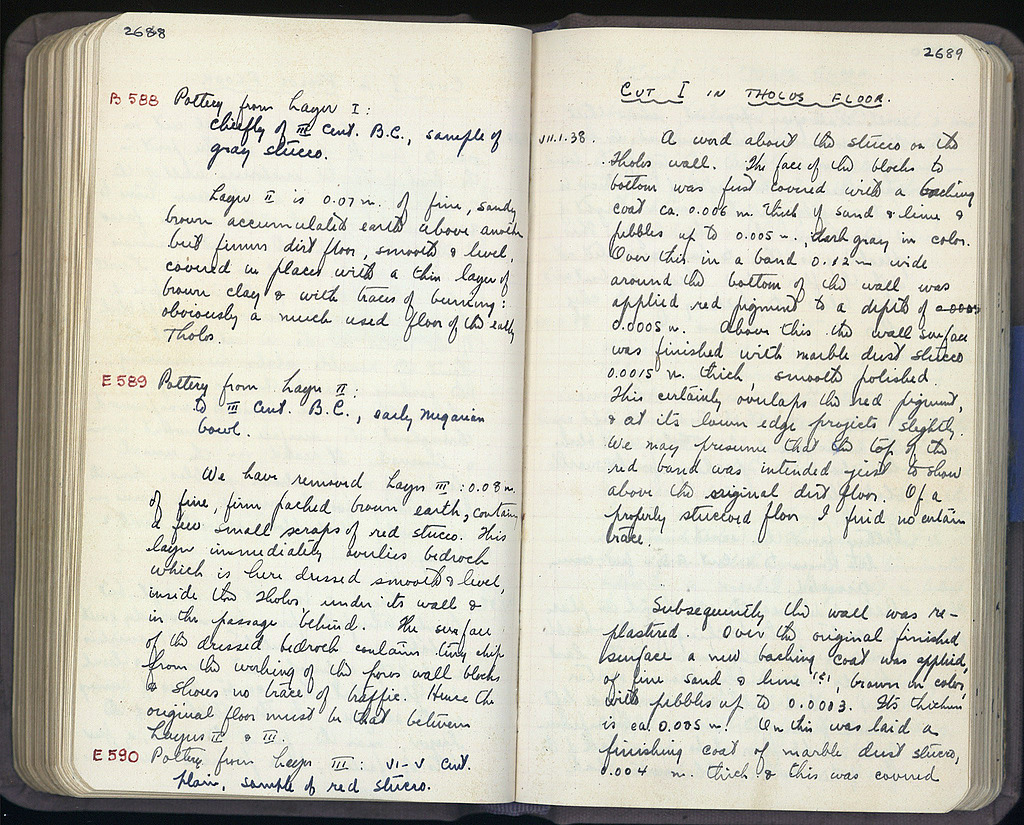 2688
B 588 Pottery from Layer I:
chiefly of III Cent. B.C., sample of
gray stucco.
Layer II is 0.07 m. of fine, sandy
brown accumulated earth above another
but firmer dirt floor, smooth & level,
covered in places with a thin layer of
brown clay & with traces of burning:
obviously a much used floor of the early
Tholos.
E 589 Pottery from Layer II:
to III Cent. B.C., early Megarian
bowl.
We have removed Layer III: 0.08 m.
of fine, firm packed brown earth, contain
a few small scraps of red stucco. This
layer immediately overlies bedrock
which is here dressed smooth & level,
inside the Tholos, under its wall &
in the passage behind. The surface
of the dressed bedrock contains tiny chip
from the working of the poros wall blocks
& shows no trace of traffic. Hence the
original floor must be that between
Layers II & III.
E 590 Pottery from Layer III: VI-V Cent.
plain, sample of red stucco.
2689
CUT I IN THOLOS FLOOR.
VII.1.38. A word about the stucco on the
Tholos wall. The face of the blocks to
bottom was first covered with a backing
coat ca. 0.006 m. thick of sand & lime &
pebbles up to 0.005 m., dark gray in color.
Over this in a band 0.12 m wide
around the bottom of the wall was
applied red pigment to a depth of 0.0005
0.0005 m. Above this the wall surface
was finished with marble dust stucco
0.0015 m. thick, smooth polished.
This certainly overlaps the red pigment,
& at its lower edge projects slightly.
We may presume that the top of the
red band was intended just to show
above the original dirt floor. Of a
properly stuccoed floor I find no certain
trace.
Subsequently the wall was re-
plastered. Over the original finished
surface a new backing coat was applied,
of fine sand & lime (?), brown in color
with pebbles up to 0.0003. Its thickness
is ca. 0.005 m. On this was laid a
finishing coat of marble dust stucco,
0.004 m. thick & this was covered